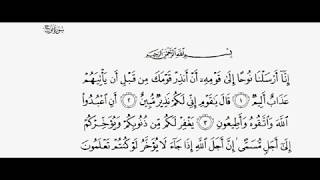 سورة نوح
بِسْمِ اللَّهِ الرَّحْمَٰنِ الرَّحِيمِ
إِنَّا أَرْسَلْنَا نُوحًا إِلَىٰ قَوْمِهِ أَنْ أَنذِرْ قَوْمَكَ مِن قَبْلِ أَن يَأْتِيَهُمْ
عَذَابٌ أَلِيمٌ ١ قَالَ يَٰقَوْمِ إِنِّي لَكُمْ نَذِيرٌ مُّبِينٌ ٢ أَنِ اعْبُدُوا
اللَّهَ وَاتَّقُوهُ وَأَطِيعُونِ ٣ يَغْفِرْ لَكُم مِّن ذُنُوبِكُمْ وَيُؤَخِّرْكُمْ
إِلَىٰ أَجَلٍ مُّسَمًّى إِنَّ أَجَلَ اللَّهِ إِذَا جَاءَ لَا يُؤَخَّرُ لَوْ كُنتُمْ تَعْلَمُونَ